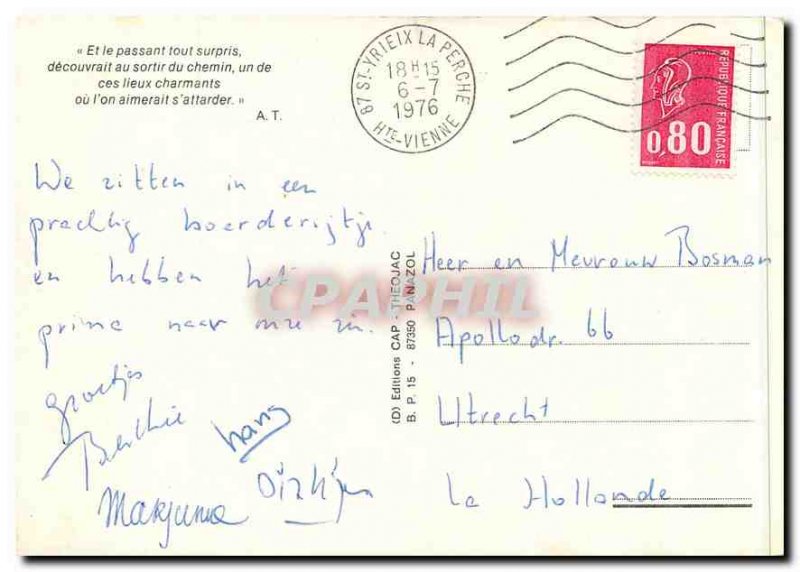 « Et le passant tout surpris,
découvrait au sortir du chemin, un de
ces lieux charmants
où l'on aimerait s'attarder. »
A. T.
87 ST-YRIEIX LA PERCHE
18H15
6-7
1976
HTE-VIENNE
REPUBLIQUE FRANÇAISE
0,80
We zitten in een
prachtig boerderijtje
en hebben het
prima naar onze zin.
groetjes
Berthie
hans
Marjunna
Dirkjan
(D) Editions CAP - THEOJAC
B. P. 15 - 87350 PANAZOL
Heer en Mevrouw Bosman
Apollodr. 66
Utrecht
la Hollande
CPAPHIL